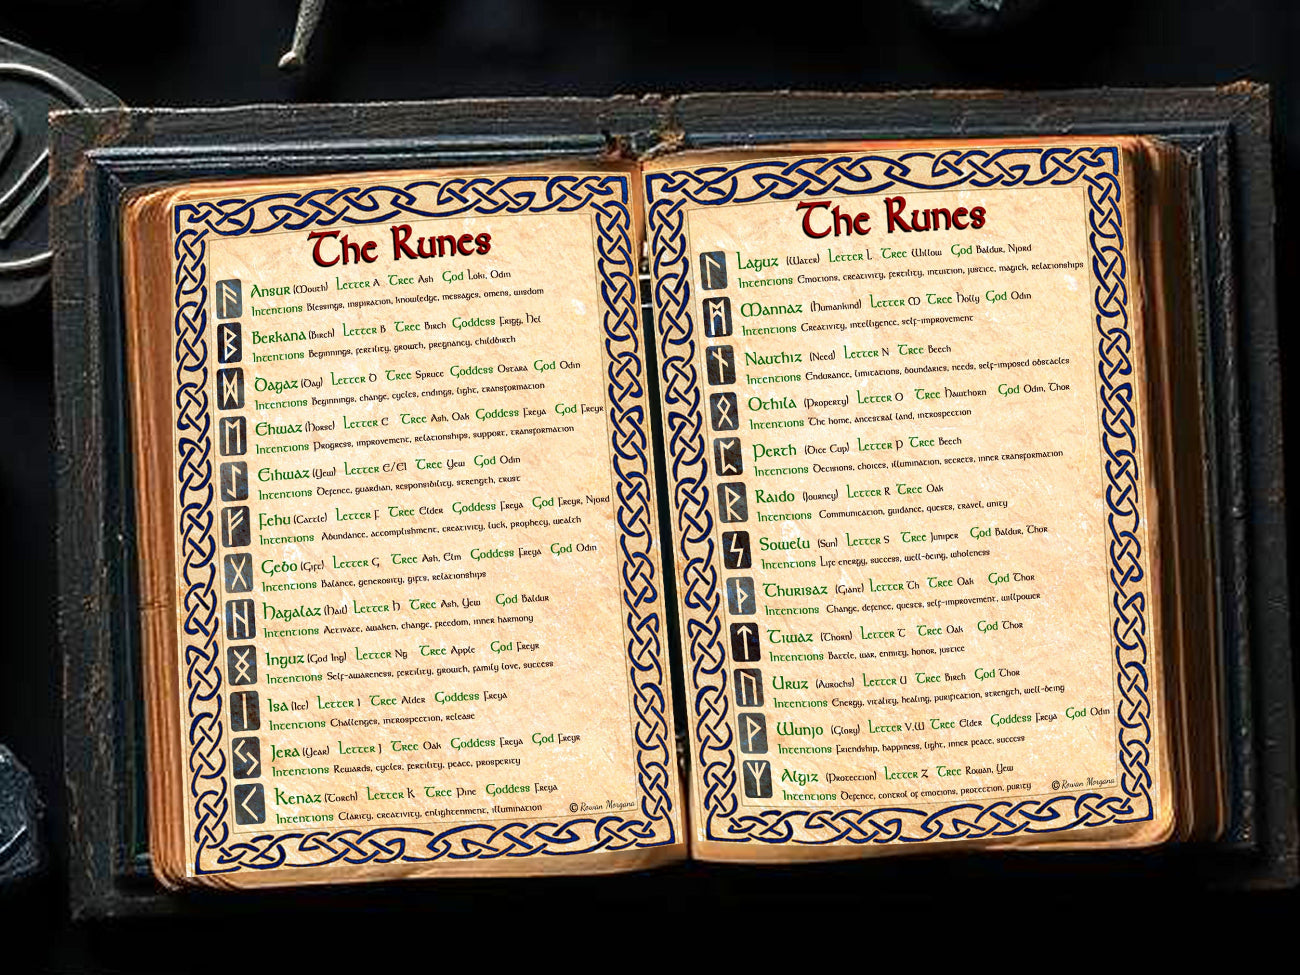 The Runes
ᚨ Ansur (Mouth) Letter A Tree Ash God Loki, Odin
Intentions Blessings, inspiration, knowledge, messages, omens, wisdom
ᛒ Berkana (Birch) Letter B Tree Birch Goddess Frigg, Hel
Intentions Beginnings, fertility, growth, pregnancy, childbirth
ᛞ Dagaz (Day) Letter D Tree Spruce Goddess Ostara God Odin
Intentions Beginnings, change, cycles, endings, light, transformation
ᛖ Ehwaz (Horse) Letter E Tree Ash, Oak Goddess Freya God Freyr
Intentions Progress, improvement, relationships, support, transformation
ᛇ Eihwaz (Yew) Letter E/EI Tree Yew God Odin
Intentions Defence, guardian, responsibility, strength, trust
ᚠ Fehu (Cattle) Letter F Tree Elder Goddess Freya God Freyr, Njord
Intentions Abundance, accomplishment, creativity, luck, prophecy, wealth
ᚷ Gebo (Gift) Letter G Tree Ash, Elm Goddess Freya God Odin
Intentions Balance, generosity, gifts, relationships
ᚺ Hagalaz (Hail) Letter H Tree Ash, Yew God Baldur
Intentions Activate, awaken, change, freedom, inner harmony
ᛝ Inguz (God Ing) Letter Ng Tree Apple God Freyr
Intentions Self-awareness, fertility, growth, family love, success
ᛁ Isa (Ice) Letter I Tree Alder Goddess Freya
Intentions Challenges, introspection, release
ᛃ Jera (Year) Letter J Tree Oak Goddess Freya God Freyr
Intentions Rewards, cycles, fertility, peace, prosperity
ᚲ Kenaz (Torch) Letter K Tree Pine Goddess Freya
Intentions Clarity, creativity, enlightenment, illumination
© Rowan Morgana
The Runes
ᛚ Laguz (Water) Letter L Tree Willow God Baldur, Njord
Intentions Emotions, creativity, fertility, intuition, justice, magick, relationships
ᛗ Mannaz (Humankind) Letter M Tree Holly God Odin
Intentions Creativity, intelligence, self-improvement
ᚾ Nauthiz (Need) Letter N Tree Beech
Intentions Endurance, limitations, boundaries, needs, self-imposed obstacles
ᛟ Othila (Property) Letter O Tree Hawthorn God Odin, Thor
Intentions The home, ancestral land, introspection
ᛈ Perth (Dice Cup) Letter P Tree Beech
Intentions Decisions, choices, illumination, secrets, inner transformation
ᚱ Raido (Journey) Letter R Tree Oak
Intentions Communication, guidance, quests, travel, unity
ᛋ Sowelu (Sun) Letter S Tree Juniper God Baldur, Thor
Intentions Life energy, success, well-being, wholeness
ᚦ Thurisaz (Giant) Letter Th Tree Oak God Thor
Intentions Change, defence, quests, self-improvement, willpower
ᛏ Tiwaz (Thorn) Letter T Tree Oak God Thor
Intentions Battle, war, enmity, honor, justice
ᚢ Uruz (Aurochs) Letter U Tree Birch God Thor
Intentions Energy, vitality, healing, purification, strength, well-being
ᚹ Wunjo (Glory) Letter V,W Tree Elder Goddess Freya God Odin
Intentions Friendship, happiness, light, inner peace, success
ᛉ Algiz (Protection) Letter Z Tree Rowan, Yew
Intentions Defence, control of emotions, protection, purity
© Rowan Morgana